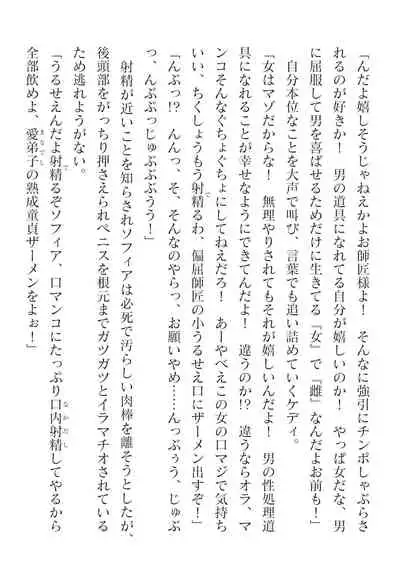 「んだよ嬉しそうじゃねえかよお師匠様よ！　そんなに強引にチンポしゃぶらさ
れるのが好きか！　男の道具になれてる自分が嬉しいのか！　やっぱ女だな、男
に屈服して男を喜ばせるためだけに生きてる『女』で『雌』なんだよお前も！」
　自分本位なことを大声で叫び、言葉でも追い詰めていくケディ。
「女はマゾだからな！　無理やりされてもそれが嬉しいんだよ！　男の性処理道
具になれることが幸せなようにできてんだよ！　違うのか!?　違うならオラ、マ
ンコそんなぐちょぐちょにしてねえだろ！　あーやべえこの女の口マジで気持ち
いい、ちくしょうもう射精るわ、偏屈師匠の小うるせえ口にザーメン出すぞ！」
「んぶっ!?　んんっ、そ、そんなのやらっ、お願いやめ……んっぶぅう、じゅぶ
っ、んぷぷっじゅぶぶぶうう！」
　射精が近いことを知らされソフィアは必死で汚らしい肉棒を離そうとしたが、
後頭部をがっちり押さえられペニスを根元までガツガツとイラマチオされている
ため逃れようがない。
「うるせえんだよ射精るぞソフィア、口マンコにたっぷり口内射精してやるから
全部飲めよ、愛弟子の熟成童貞ザーメンをよぉ！」